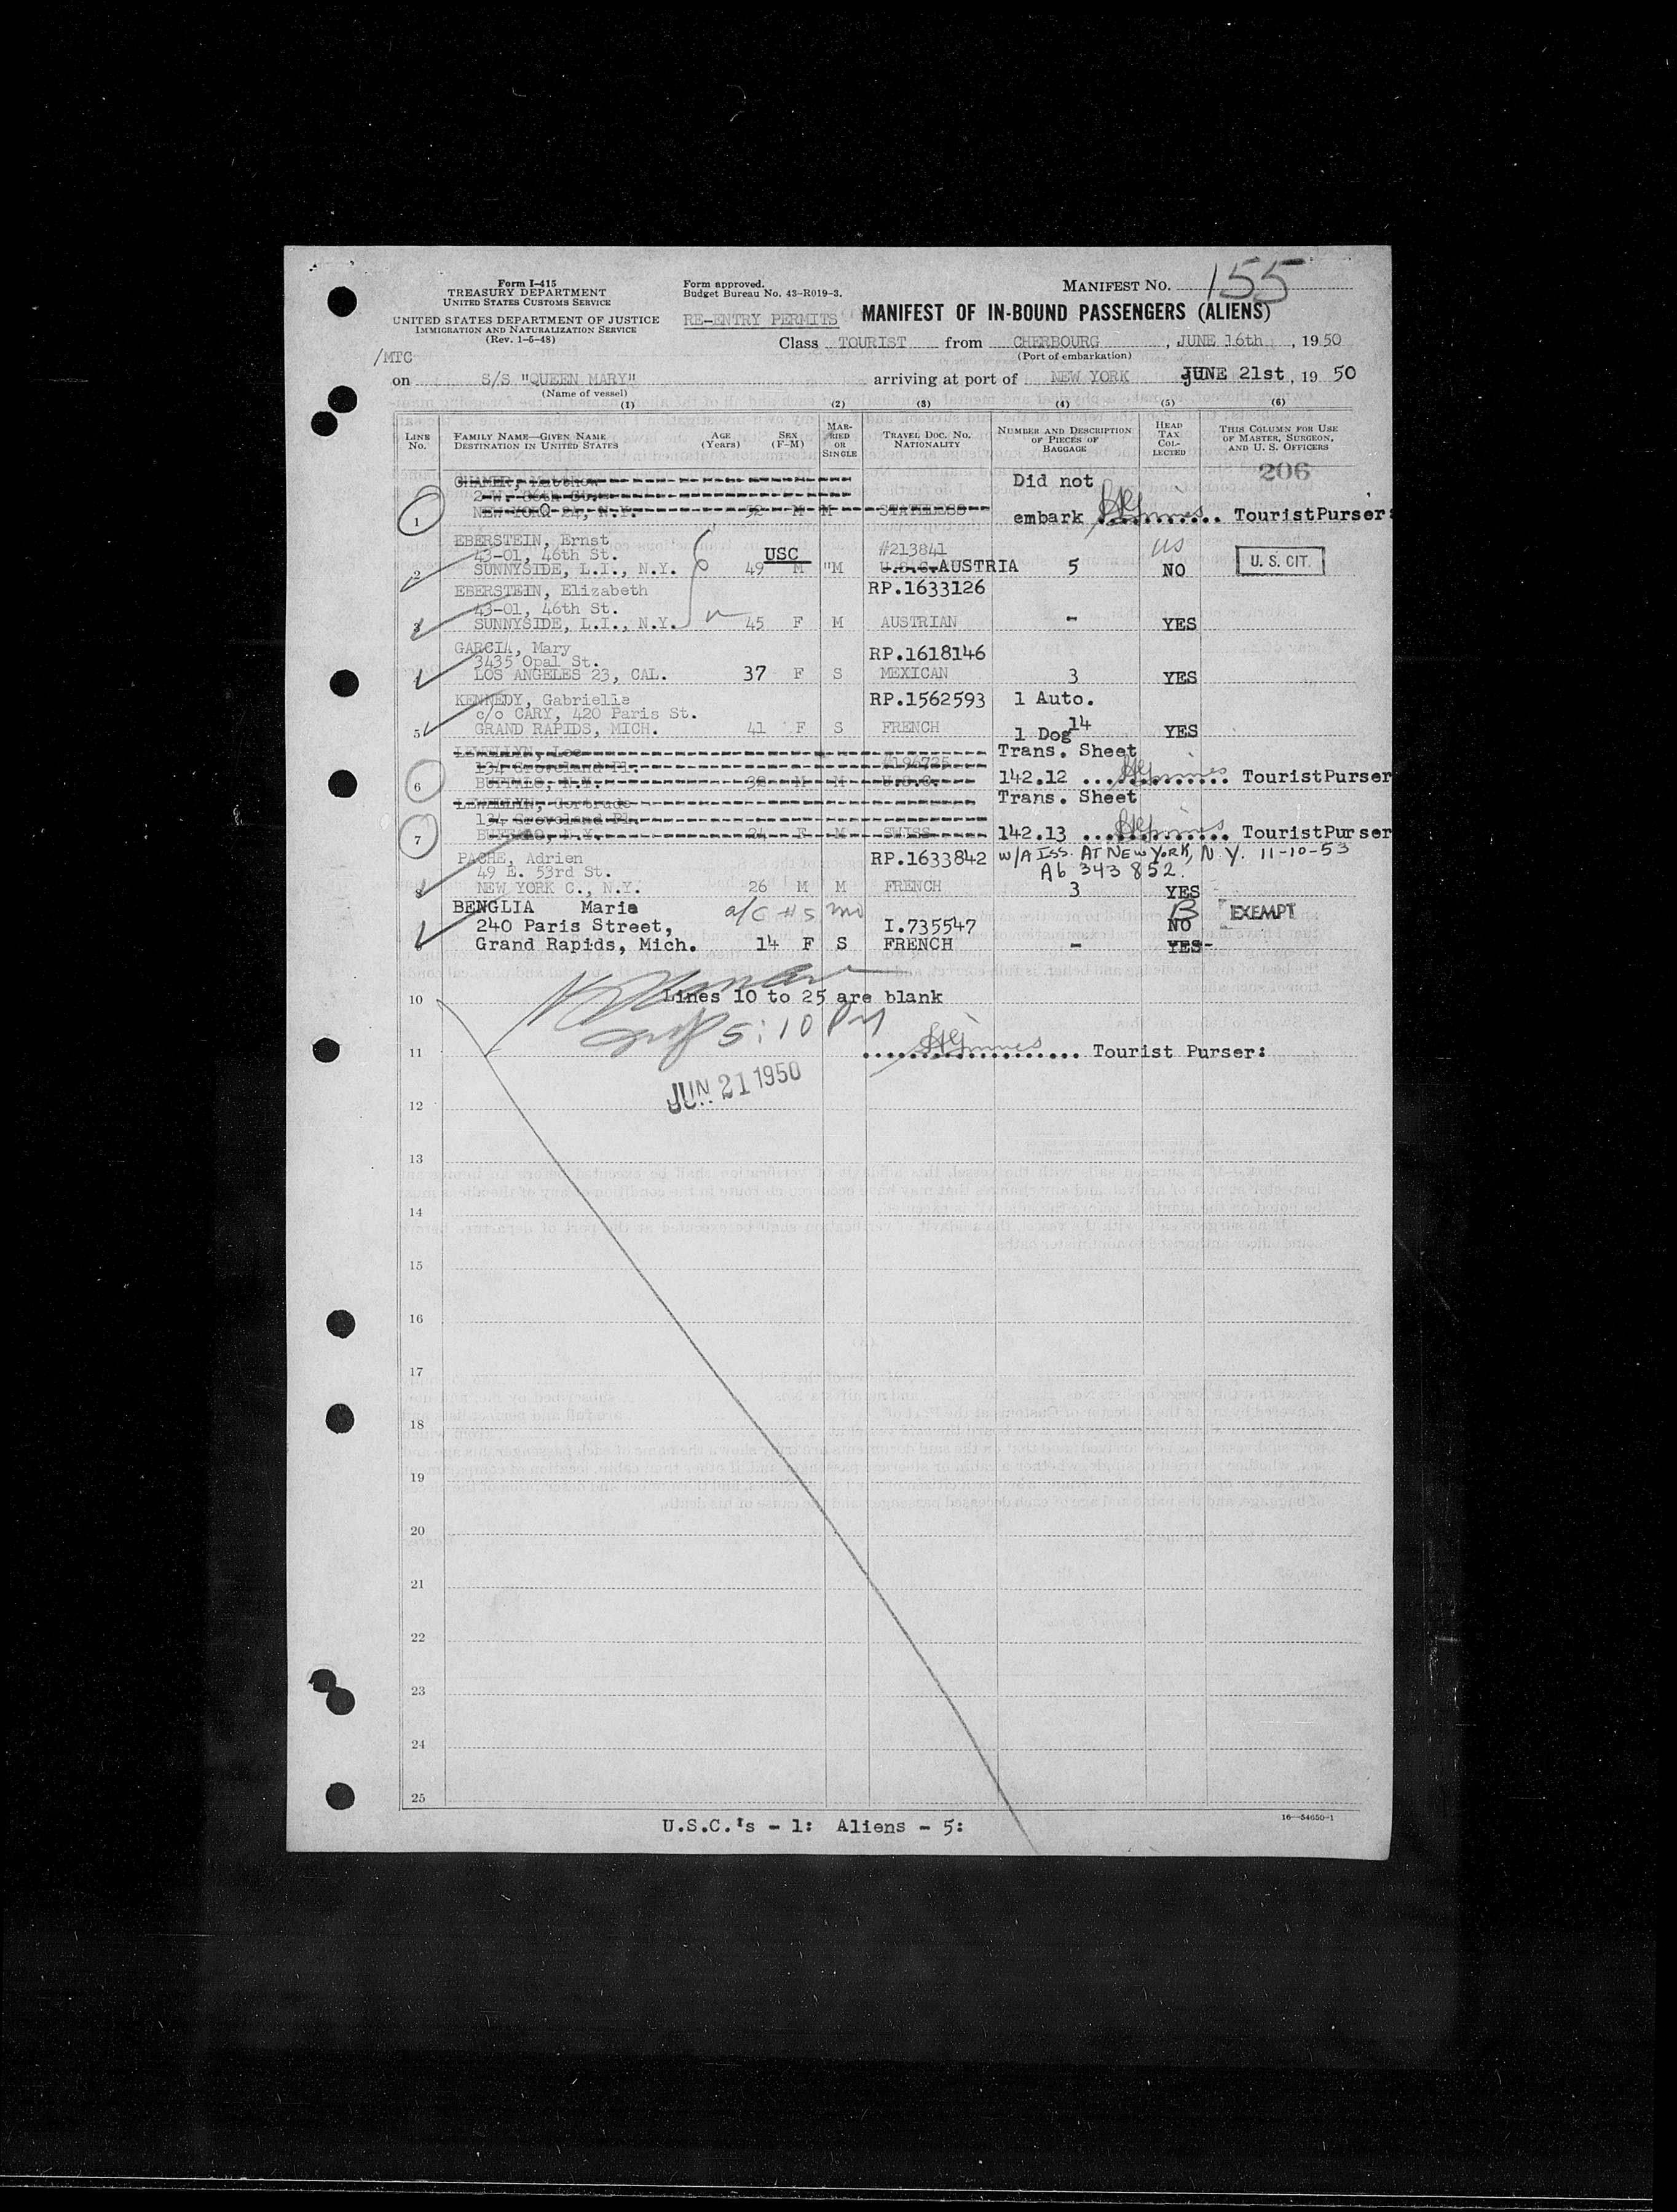 Form I-415
TREASURY DEPARTMENT
UNITED STATES CUSTOMS SERVICE
UNITED STATES DEPARTMENT OF JUSTICE
IMMIGRATION AND NATURALIZATION SERVICE
(Rev. 1-5-48)
Form approved.
Budget Bureau No. 43-R019-3.
MANIFEST NO. 155
RE-ENTRY PERMITS MANIFEST OF IN-BOUND PASSENGERS (ALIENS)
Class TOURIST from CHERBOURG, JUNE 16th, 1950
(Port of embarkation)
/MTC
on S/S "QUEEN MARY" arriving at port of NEW YORK JUNE 21st, 19 50
(Name of vessel)
(1) (2) (3) (4) (5) (6)
LINE NO. FAMILY NAME—GIVEN NAME DESTINATION IN UNITED STATES AGE (Years) SEX (F-M) MARRIED OR SINGLE TRAVEL DOC. NO. NATIONALITY NUMBER AND DESCRIPTION OF PIECES OF BAGGAGE HEAD TAX COLLECTED THIS COLUMN FOR USE OF MASTER, SURGEON, AND U. S. OFFICERS
206
Did not
1 NEW YORK 24, N.Y. 52 M M STATELESS embark TouristPurser:
EBERSTEIN, Ernst
43-01, 46th St. USC #213841 US
2 SUNNYSIDE, L.I., N.Y. 49 M "M U.S.C. AUSTRIA 5 NO U. S. CIT.
EBERSTEIN, Elizabeth RP.1633126
43-01, 46th St.
3 SUNNYSIDE, L.I., N.Y. 45 F M AUSTRIAN - YES
GARCIA, Mary
3435 Opal St. RP.1618146
4 LOS ANGELES 23, CAL. 37 F S MEXICAN 3 YES
KENNEDY, Gabrielle RP.1562593 1 Auto.
c/o CARY, 420 Paris St.
5 GRAND RAPIDS, MICH. 41 F S FRENCH 1 Dog 14 YES
LEWELLYN, Leo Trans. Sheet
134 Groveland Pl. #196735
6 BUFFALO, N.Y. 32 M M U.S.C. 142.12 TouristPurser
LEWELLYN, Gertrude Trans. Sheet
134 Groveland Pl.
7 BUFFALO, N.Y. 24 F M SWISS 142.13 TouristPurser
PACHE, Adrien RP.1633842 W/A ISS. AT NEW YORK, N.Y. 11-10-53
49 E. 53rd St. A6 343 852.
8 NEW YORK C., N.Y. 26 M M FRENCH 3 YES
BENGLIA Marie a/c #5 B EXEMPT
240 Paris Street, I.735547 NO
9 Grand Rapids, Mich. 14 F S FRENCH - YES-
10 Lines 10 to 25 are blank
5:10 PM
11 Tourist Purser:
JUN 21 1950
12
13
14
15
16
17
18
19
20
21
22
23
24
25
16—54650-1
U.S.C.'s - 1: Aliens - 5: